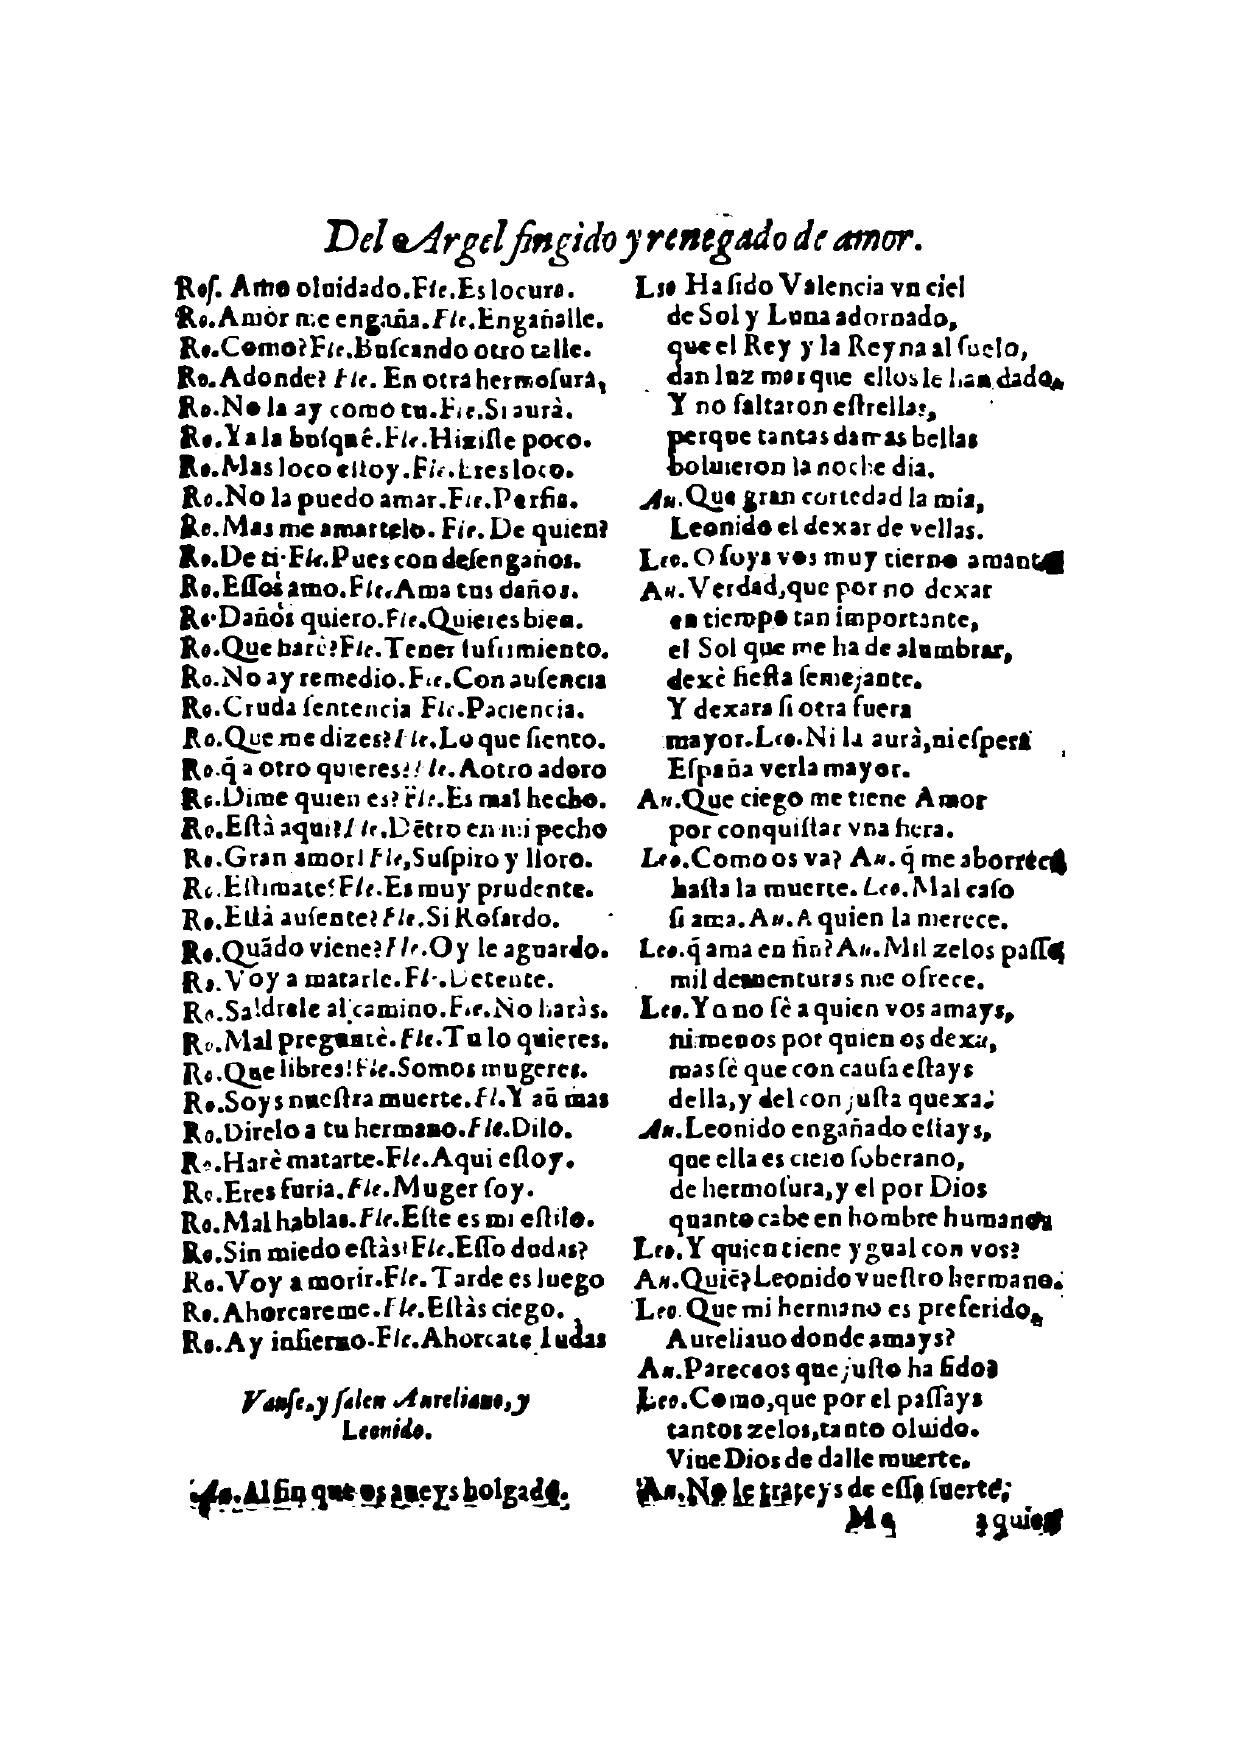 Del Argel fingido y renegado de amor.
Ros. Amo oluidado. Fle. Es locura.
Ro. Amor me engaña. Fle. Engañalle.
Ro. Como? Fle. Buscando otro talle.
Ro. Adonde? Fle. En otra hermosura,
Ro. No la ay como tu. Fle. Si aurà.
Ro. Ya la busquê. Fle. Hiziste poco.
Ro. Mas loco estoy. Fle. Eres loco.
Ro. No la puedo amar. Fle. Porfia.
Ro. Mas me amartelo. Fle. De quien?
Ro. De ti. Fle. Pues con desengaños.
Ro. Essos amo. Fle. Ama tus daños.
Ro. Daños quiero. Fle. Quieres bien.
Ro. Que harè? Fle. Tener sufrimiento.
Ro. No ay remedio. Fle. Con ausencia
Ro. Cruda sentencia Fle. Paciencia.
Ro. Que me dizes? Fle. Lo que siento.
Ro. q̃ a otro quieres? Fle. A otro adoro
Ro. Dime quien es? Fle. Es mal hecho.
Ro. Està aqui? Fle. Dētro en mi pecho
Ro. Gran amor! Fle, Suspiro y lloro.
Ro. Estimate? Fle. Es muy prudente.
Ro. Està ausente? Fle. Si Rosardo.
Ro. Quādo viene? Fle. Oy le aguardo.
Ro. Voy a matarle. Fle. Detente.
Ro. Saldrele al camino. Fle. No haràs.
Ro. Mal preguntè. Fle. Tu lo quieres.
Ro. Que libres! Fle. Somos mugeres.
Ro. Soys nuestra muerte. Fl. Y aũ mas
Ro. Direlo a tu hermano. Fle. Dilo.
Ro. Harè matarte. Fle. Aqui estoy.
Ro. Eres furia. Fle. Muger soy.
Ro. Mal hablas. Fle. Este es mi estilo.
Ro. Sin miedo estàs! Fle. Esso dudas?
Ro. Voy a morir. Fle. Tarde es luego
Ro. Ahorcareme. Fle. Estàs ciego.
Ro. Ay infierno. Fle. Ahorcate Iudas
Vanse, y salen Aureliano, y
Leonido.
Au. Al fin que os aueys holgado.
Leo Ha sido Valencia vn ciel
de Sol y Luna adornado,
que el Rey y la Reyna al suelo,
dan luz mas que ellos le han dado,
Y no faltaron estrellas,
perque tantas damas bellas
boluieron la noche dia.
Au. Que gran cortedad la mia,
Leonido el dexar de vellas.
Leo. O soys vos muy tierno amante
Au. Verdad, que por no dexar
en tiempo tan importante,
el Sol que me ha de alumbrar,
dexè fiesta semejante.
Y dexara si otra fuera
mayor. Leo. Ni la aurà, ni espera
España verla mayor.
Au. Que ciego me tiene Amor
por conquistar vna fiera.
Leo. Como os va? Au. q̃ me aborrece
hasta la muerte. Leo. Mal caso
si ama. Au. A quien la merece.
Leo. q̃ ama en fin? Au. Mil zelos passo
mil desuenturas me ofrece.
Leo. Yo no sè a quien vos amays,
ni menos por quien os dexa,
mas sè que con causa estays
della, y del con justa quexa.
Au. Leonido engañado estays,
que ella es cielo soberano,
de hermosura, y el por Dios
quanto cabe en hombre humano
Leo. Y quien tiene ygual con vos?
Au. Quiē? Leonido vuestro hermano.
Leo. Que mi hermano es preferido,
Aureliauo donde amays?
Au. Pareceos que justo ha sido
Leo. Como, que por el passays
tantos zelos, tanto oluido.
Viue Dios de dalle muerte.
Au. No le trateys de essa suerte;
M 4 aquien